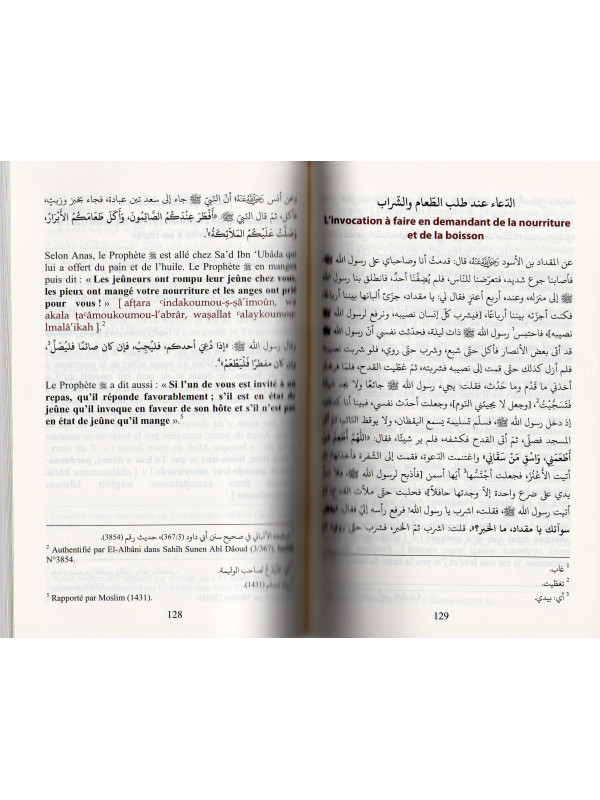 وعن أنس رَضِيَ اللَّهُ عَنْهُ؛ أنّ النّبيّ ﷺ جاء إلى سعد بن عبادة، فجاء بخبز وزيتٍ،
فأكل، ثمّ قال النّبيّ ﷺ: «أَفْطَرَ عِنْدَكُمُ الصَّائِمُونَ، وَأَكَلَ طَعَامَكُمُ الأَبْرَارُ،
وَصَلَّتْ عَلَيْكُمُ المَلَائِكَةُ».¹
Selon Anas, le Prophète ﷺ est allé chez Sa'd Ibn 'Ubâda
qui lui a offert du pain et de l'huile. Le Prophète ﷺ en mangea
puis dit : « Les jeûneurs ont rompu leur jeûne chez vous,
les pieux ont mangé votre nourriture et les anges ont prié
pour vous ! » [ aftara 'indakoumou-ṣ-ṣâ'imoûn, wa
akala ṭa'âmoukoumou-l'abrâr, waṣallat 'alaykoumou
lmalâ'ikah ].²
وقال رسول الله ﷺ: «إِذَا دُعِيَ أحدكم، فليُجِبْ، فإن كان صائمًا فليُصَلِّ،
وإن كان مفطرًا فَلْيَطْعَمْ».⁴
Le Prophète ﷺ a dit aussi : « Si l'un de vous est invité à un
repas, qu'il réponde favorablement ; s'il est en état de
jeûne qu'il invoque en faveur de son hôte et s'il n'est pas
en état de jeûne qu'il mange ».⁵
الألباني في صحيح سنن أبي داود (367/3) حديث رقم (3854).
² Authentifié par El-Albâni dans Sahîh Sunen Abî Dâoud (3/367),
N°3854.
لصاحب الوليمة.
مسلم (1431).
⁵ Rapporté par Moslim (1431).
128
الدّعاء عند طلب الطّعام والشّراب
L'invocation à faire en demandant de la nourriture
et de la boisson
عن المقداد بن الأسود رَضِيَ اللَّهُ عَنْهُ قال: قدمتُ أنا وصاحباي على رسول الله ﷺ
فأصابنا جوع شديد، فتعرّضنا للنّاس، فلم يُضِفْنا أحدٌ، فانطلق بنا رسول الله ﷺ
إلى منزله، وعنده أربع أعنز فقال لي: يا مقداد، جزّئ ألبانها بيننا أرباعًا
فكنت أجزّئه بيننا أرباعًا؛ [فيشرب كلّ إنسان نصيبه، ونرفع لرسول الله ﷺ
نصيبه] فاحتبس¹ رسول الله ﷺ ذات ليلة، فحدّثت نفسي أنّ رسول الله
قد أتى بعض الأنصار فأكل حتّى شبع، وشرب حتّى روي، فلو شربت نصيبه
فلم أزل كذلك حتّى قمت إلى نصيبه فشربته، ثمّ غطّيت القدح،
أخذني ما قدُم وما حدُث، فقلت: يجيء رسول الله ﷺ جائعًا ولا يجد
فَتَسَجَّيْتُ²، [وجعل لا يجيئني النّوم]، وجعلت أحدّث نفسي، فبينا أنا كذلك
إذ دخل رسول الله ﷺ، فسلّم تسليمة يسمع اليقظان، ولا يوقظ النّائم
المسجد فصلّى، ثمّ أتى القدح فكشفه، فلم ير شيئًا، فقال: «اللَّهُمَّ أَطْعِمْ
أَطْعَمَنِي، وَاسْقِ مَنْ سَقَانِي» واغتنمت الدّعوة، فقمت إلى الشّفرة
أتيت الأعنُز، فجعلت أجتسّها³ أيّها أسمن [فأذبح لرسول الله ﷺ،
يدي على ضرع واحدة إلاّ وجدتها حافلاً]، فحلبت حتّى
أتيت رسول الله ﷺ، فقلت: اشرب يا رسول الله! فرفع رأسه إليّ، فقال:
سوآتك يا مقداد، ما الخبر؟». قلت: اشرب ثمّ الخبر، فشرب حتّى روي
¹ غاب.
² تغطّيت.
³ أي: بيدي.
129